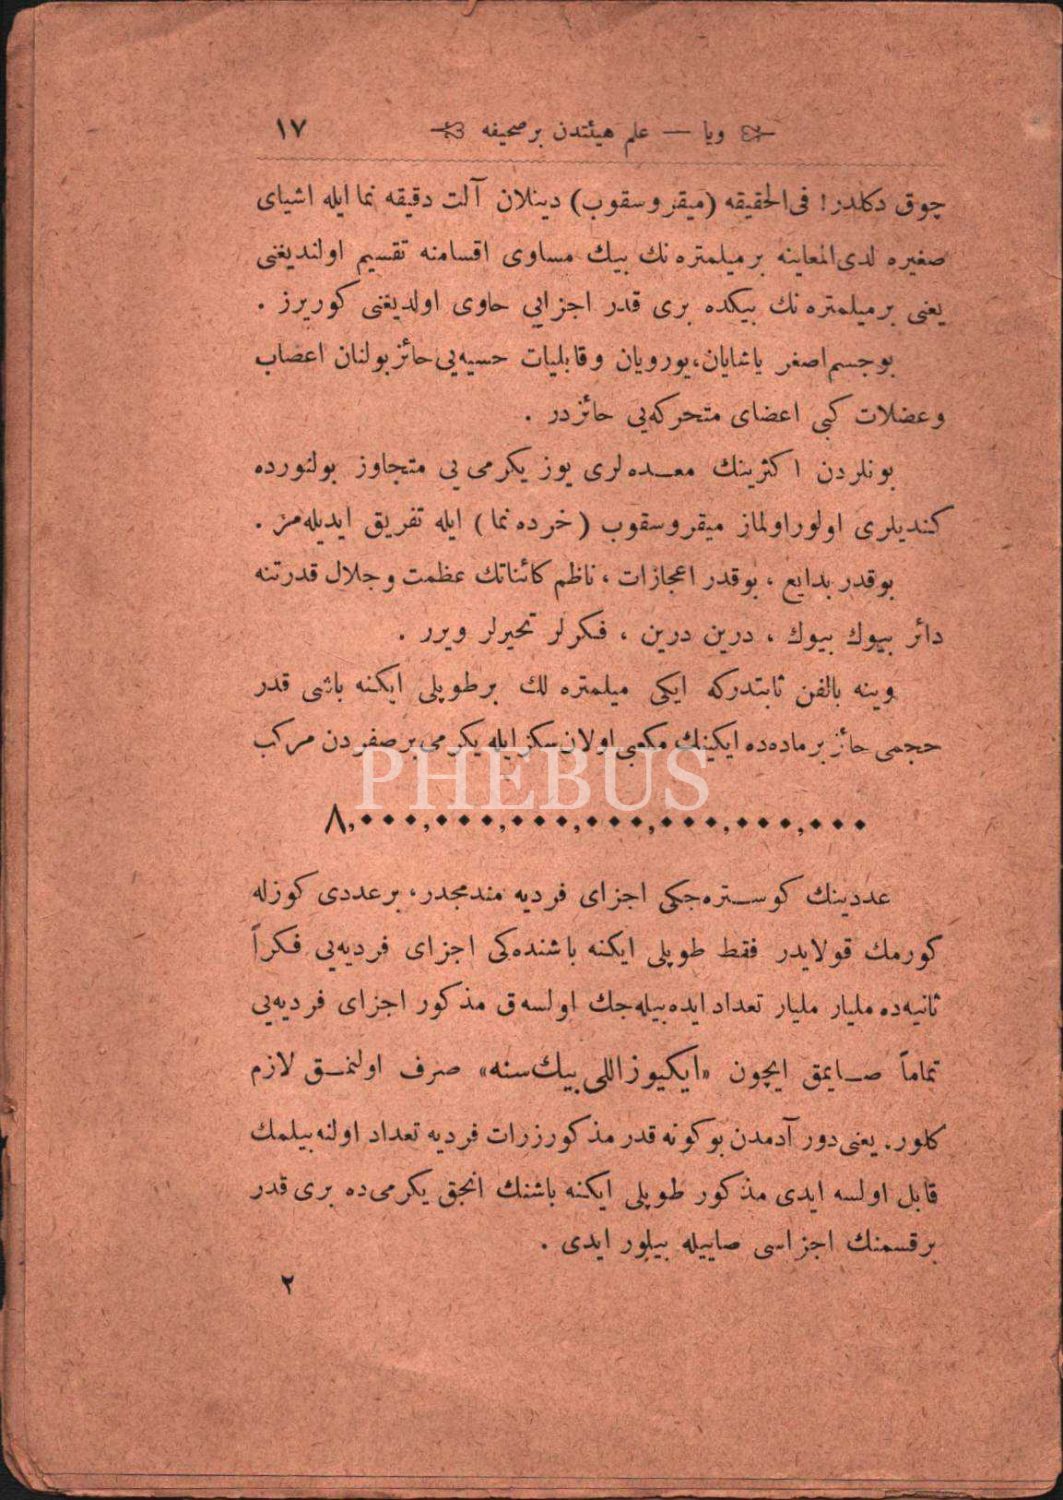 ويا — علم هيئتدن بر صحيفه ١٧
چوق دكلدر! فى‌الحقيقه (ميقروسقوب) دينلان آلت دقيقه نما ايله اشياى
صغيره لدى‌المعاينه بر ميلمتره نك بيك مساوى اقسامنه تقسيم اولنديغنى
يعنى بر ميلمتره نك بيكده برى قدر اجزايى حاوى اولديغنى كوريرز .
بو جسم اصغر ياشايان، يورويان وقابليات حسيه‌يى حائز بولنان اعصاب
وعضلات كبى اعضاى متحركه‌يى حائزدر .
بونلردن اكثرينك معده‌لرى يوز يكرمى يى متجاوز بولنورده
كنديلرى اولور اولماز ميقروسقوب (خرده نما) ايله تفريق ايديله‌مز .
بوقدر بدايع ، بوقدر اعجازات ، ناظم كائناتك عظمت وجلال قدرتنه
دائر بيوك بيوك ، درين درين ، فكرلر تحيرلر ويرر .
وينه بالفن ثابتدركه ايكى ميلمتره لك بر طوپلى ايكنه باشى قدر
حجمى حائز بر ماده‌ده ايكينك مكعبى اولان سكز ايله يكرمى بر صفردن مركب
PHEBUS
٨,٠٠٠,٠٠٠,٠٠٠,٠٠٠,٠٠٠,٠٠٠,٠٠٠
عددينك كوستره‌جكى اجزاى فرديه مندمجدر، بر عددى كوزله
كورمك قولايدر فقط طوپلى ايكنه باشنده‌كى اجزاى فرديه‌يى فكراً
ثانيه‌ده مليار مليار تعداد ايده‌بيله‌جك اولسه‌ق مذكور اجزاى فرديه‌يى
تماماً صايمق ايچون «ايكيوز اللى بيك سنه» صرف اولنمق لازم
كلور. يعنى دور آدمدن بو كونه قدر مذكور زرات فرديه تعداد اولنه بيلمك
قابل اولسه ايدى مذكور طوپلى ايكنه باشنك انجق يكرمى‌ده برى قدر
بر قسمنك اجزاسى صاييله بيلور ايدى .
٢